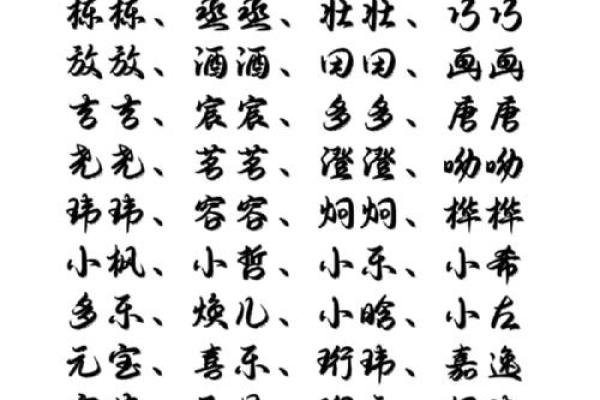 栋栋、丞丞、壮壮、巧巧
放放、酒酒、田田、画画
吉吉、宸宸、多多、唐唐
尧尧、茗茗、澄澄、呦呦
玮玮、容容、炯炯、桦桦
小枫、小哲、小乐、小希
多乐、焕儿、小晗、小左
元宝、喜乐、珩玮、嘉逸